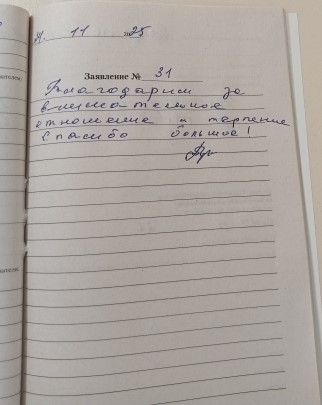 11 25
Заявление № 31
Благодарим за
внимательное
отношение и терпение
Спасибо большое!